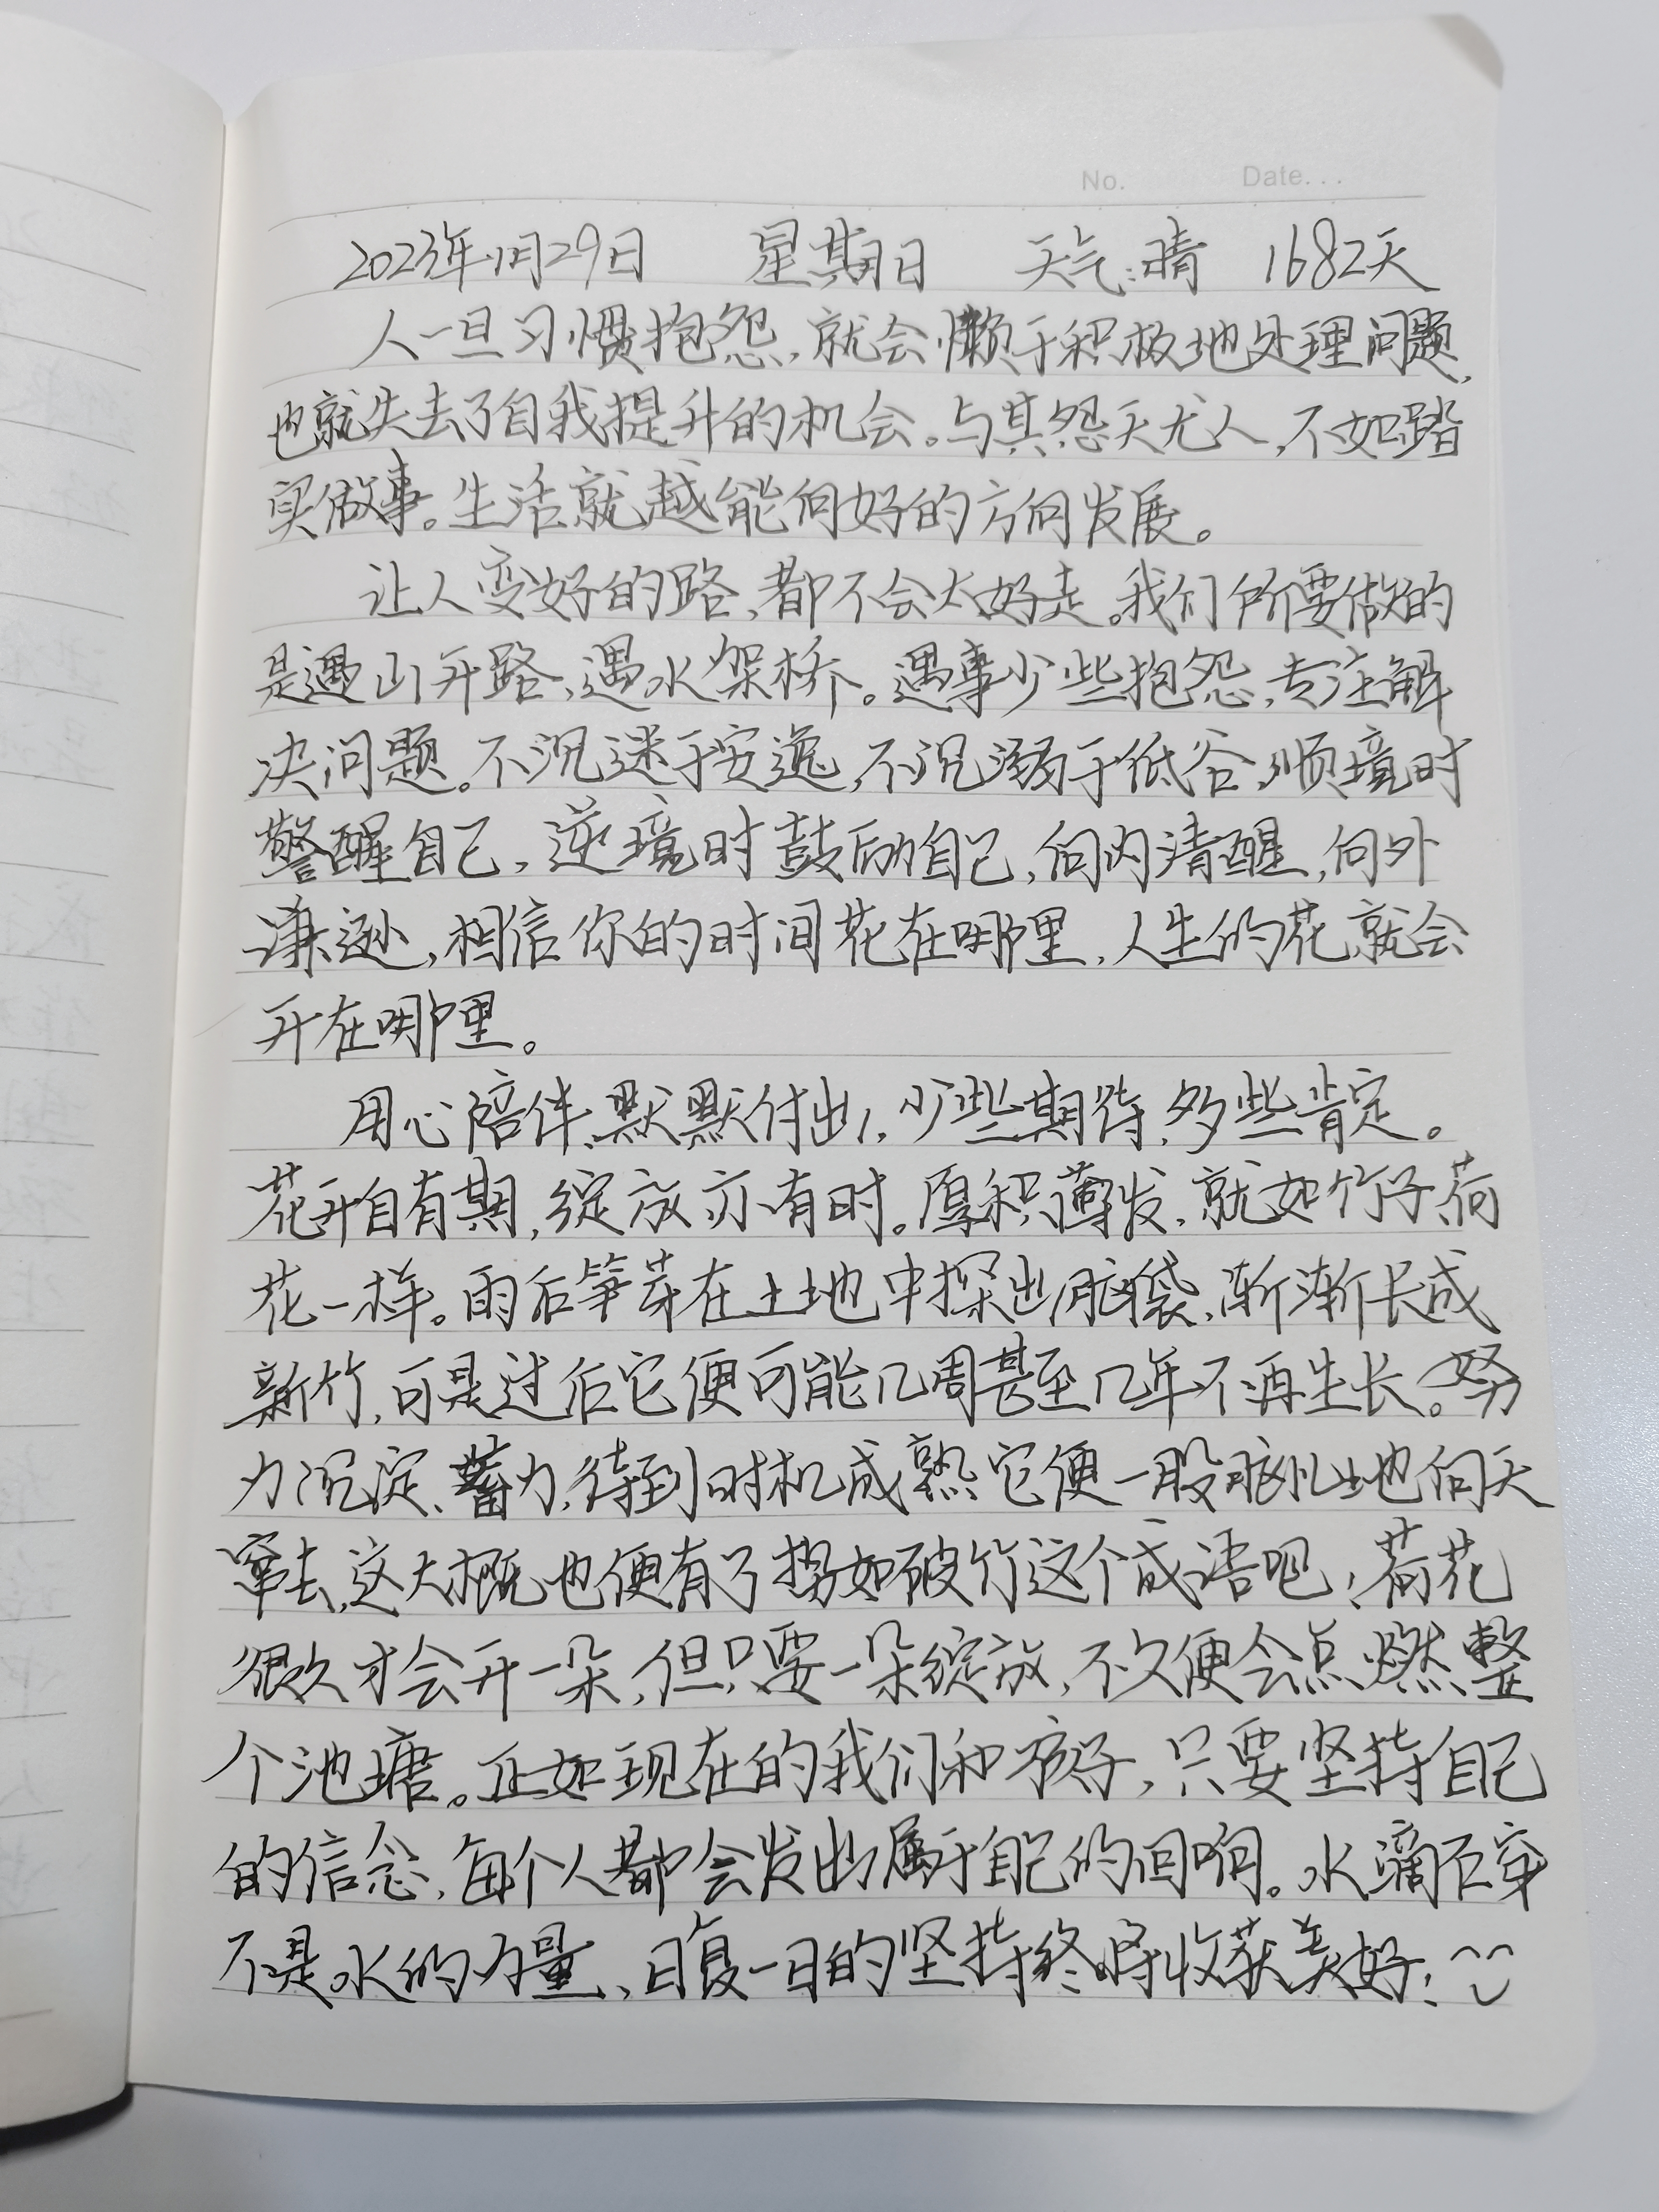 No. Date...
2023年1月29日 星期日 天气:晴 1682天
人一旦习惯抱怨,就会懒于积极地处理问题,
也就失去了自我提升的机会。与其怨天尤人,不如踏
实做事。生活就越能向好的方向发展。
让人变好的路,都不会太好走。我们所要做的
是遇山开路、遇水架桥。遇事少些抱怨,专注解
决问题。不沉迷于安逸,不沉溺于低谷,顺境时
警醒自己,逆境时鼓励自己,向内清醒,向外
谦逊,相信你的时间花在哪里,人生的花就会
开在哪里。
用心陪伴、默默付出,少些期待,多些肯定。
花开自有期,绽放亦有时。厚积薄发,就如竹子、荷
花一样。雨后笋芽在土地中探出脑袋,渐渐长成
新竹,可是过后它便可能几周甚至几年不再生长。努
力沉淀、蓄力,待到时机成熟它便一股脑儿地向天
窜去,这大概也便有了势如破竹这个成语吧;荷花
很久才会开一朵,但只要一朵绽放,不久便会点燃整
个池塘。正如现在的我们和孩子,只要坚持自己
的信念,每个人都会发出属于自己的回响。水滴石穿
不是水的力量、日复一日的坚持终将收获美好!